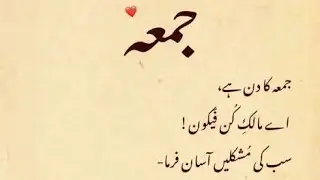 جمعہ
جمعہ کا دن ہے،
اے مالکِ کُن فَیکون!
سب کی مُشکلیں آسان فرما-